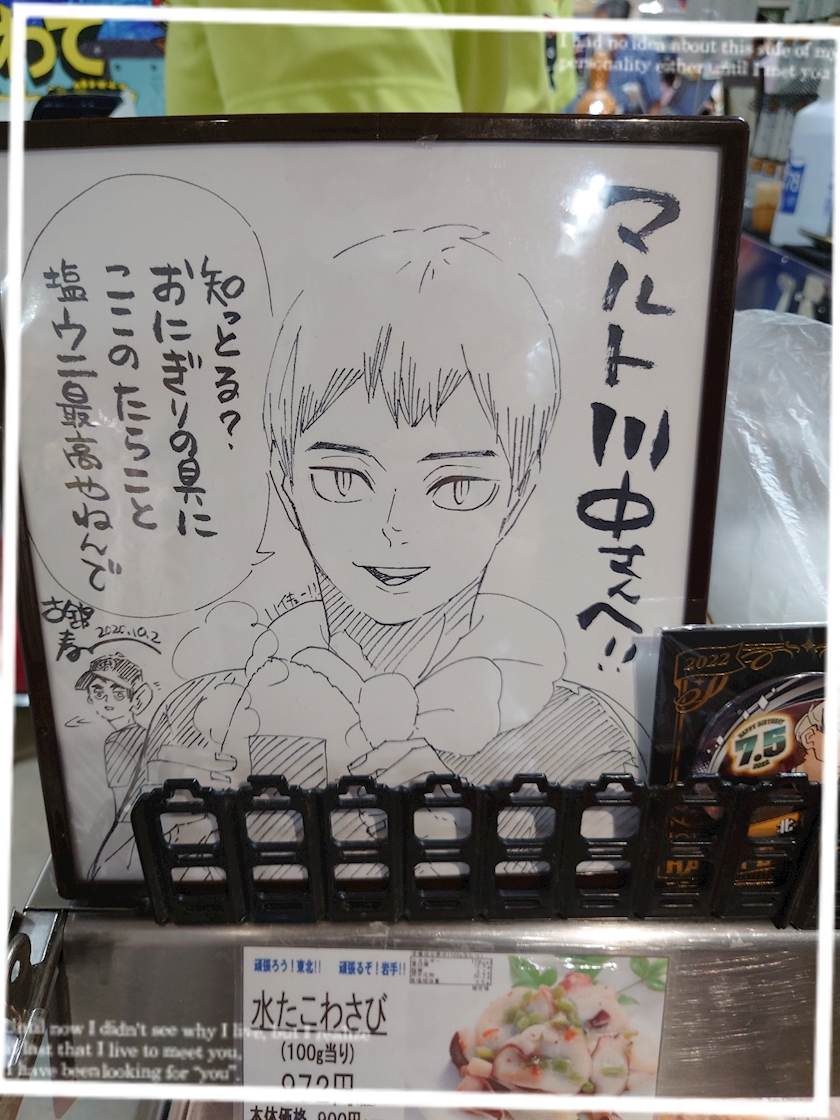 I had no idea about this side of my
personality either until I met you
マルト川中さんへ!!
知っとる?
おにぎりの具に
ここのたらこと
塩ウニ最高やねんで
古舘
春一
2020.10.2
2022
HAPPY BIRTHDAY
7.5
北
頑張ろう!東北!! 頑張るぞ!岩手!!
水たこわさび
(100g当り)
972円
本体価格 900円
now I didn't see why I live, but I realize
last that I live to meet you.
I have been looking for "you".